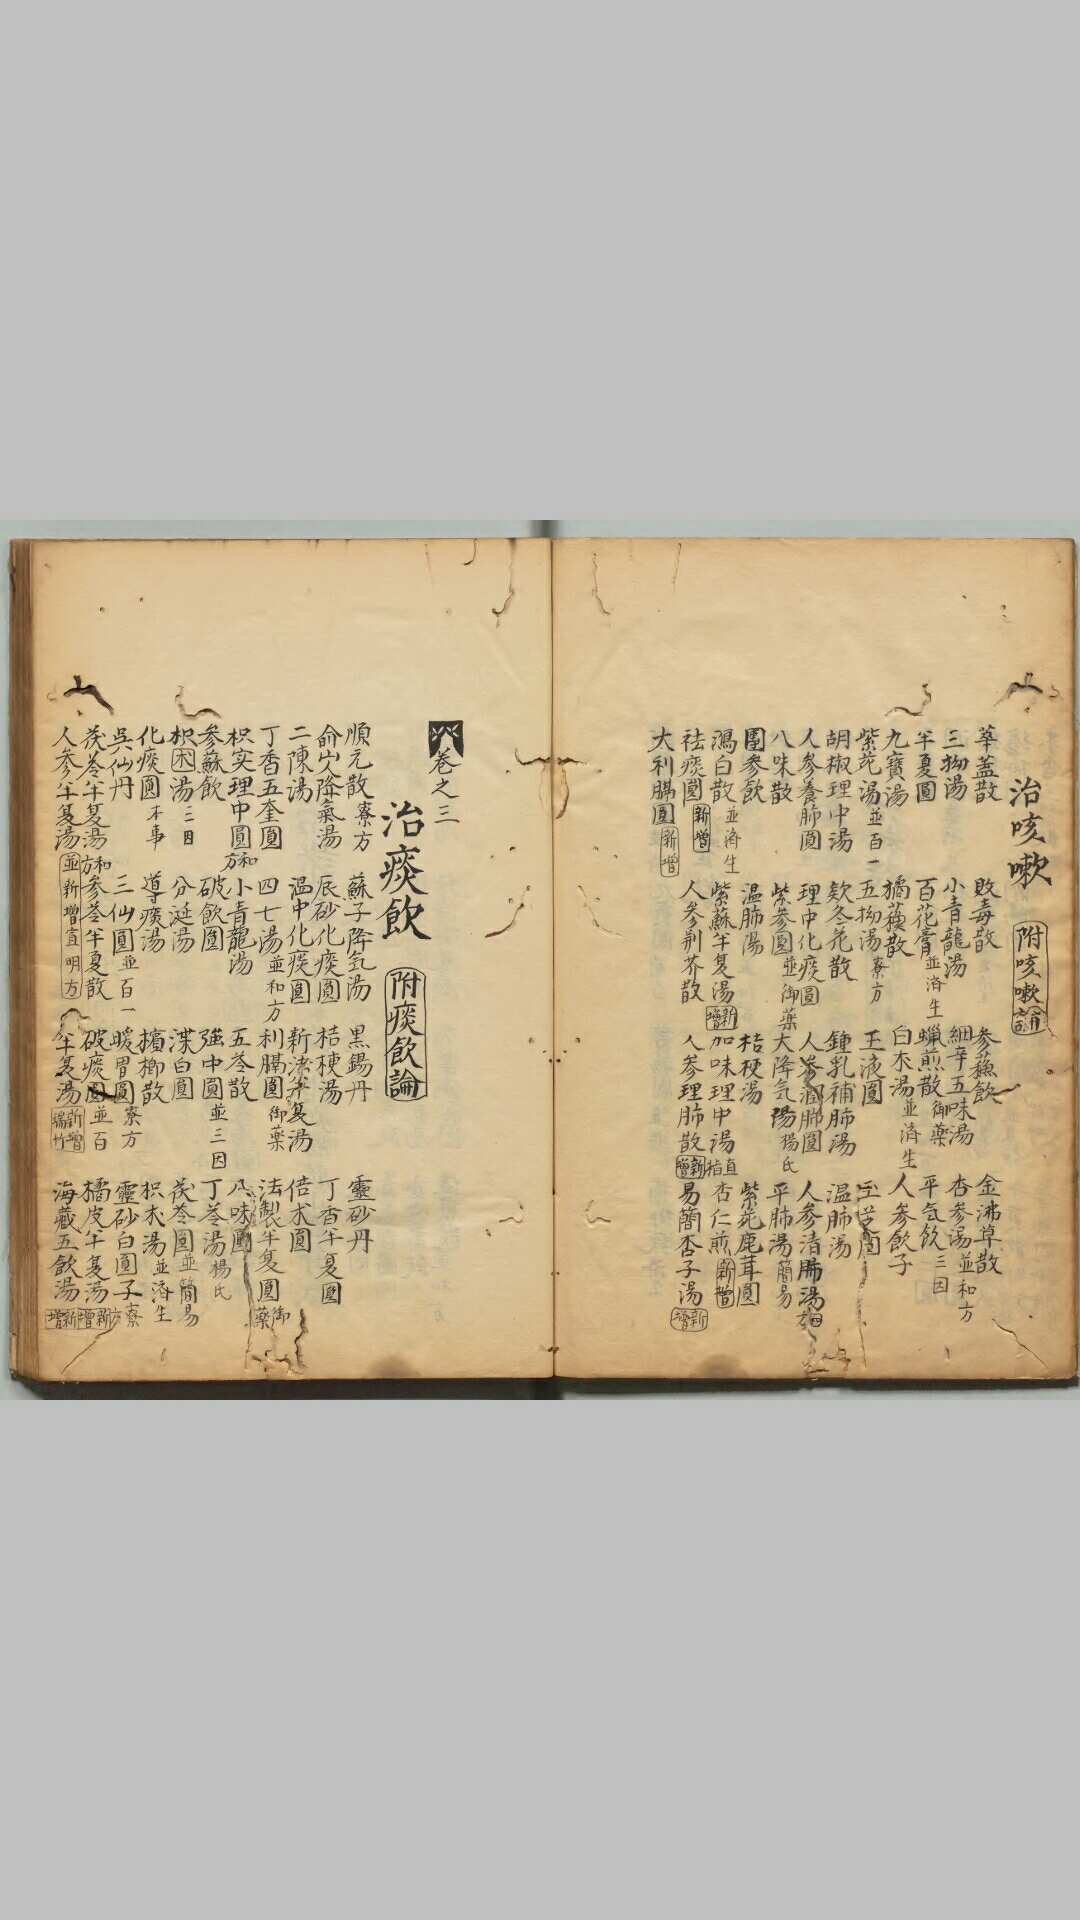 治咳嗽 附咳嗽論
華蓋散 敗毒散 參蘓飲 金沸草散
三拗湯 小青龍湯 細辛五味湯 杏參湯並和方
半夏圓 百花膏並済生 蝋煎散御藥 平気飲三因
九寶湯 橘蘓散 白朮湯並済生 人參飲子
紫菀湯並百一 五拗湯寮方 玉液圓
胡椒理中湯 欵冬花散 鍾乳補肺湯 温肺湯
人參養肺圓 理中化痰圓 人參潤肺圓 人參清肺湯
八味散 紫參圓並御藥 大降气湯楊氏 平肺湯簡易
團參飲 温肺湯 桔梗湯 紫菀鹿茸圓
鴻白散並済生 紫蘇半夏湯新增 加味理中湯直指 杏仁煎新增
祛痰圓新增 人參荆芥散 人參理肺散新增 易簡杏子湯新增
大利膈圓新增
卷之三
治痰飲 附痰飲論
順元散寮方 蘇子降気湯 黒錫丹 靈砂丹
俞山降氣湯 辰砂化痰圓 桔梗湯 丁香半夏圓
二陳湯 温中化痰圓 新法半夏湯 倍朮圓
丁香五套圓 四七湯並和方 利膈圓御藥 法製半夏圓御藥
枳实理中圓和方 小青龍湯 五苓散 八味圓
參蘇飲 破飲圓 強中圓並三因 丁苓湯楊氏
枳朮湯三因 分涎湯 渫白圓 茯苓圓並簡易
化痰圓本事 導痰湯 檳榔散 枳朮湯並済生
吳仙丹 三仙圓並百一 暖胃圓寮方 靈砂白圓子寮方
茯苓半夏湯和方 參苓半夏散 破痰圓並百 橘皮半夏湯新增
人參半夏湯並新增宣明方 半夏湯新增 海藏五飲湯新增